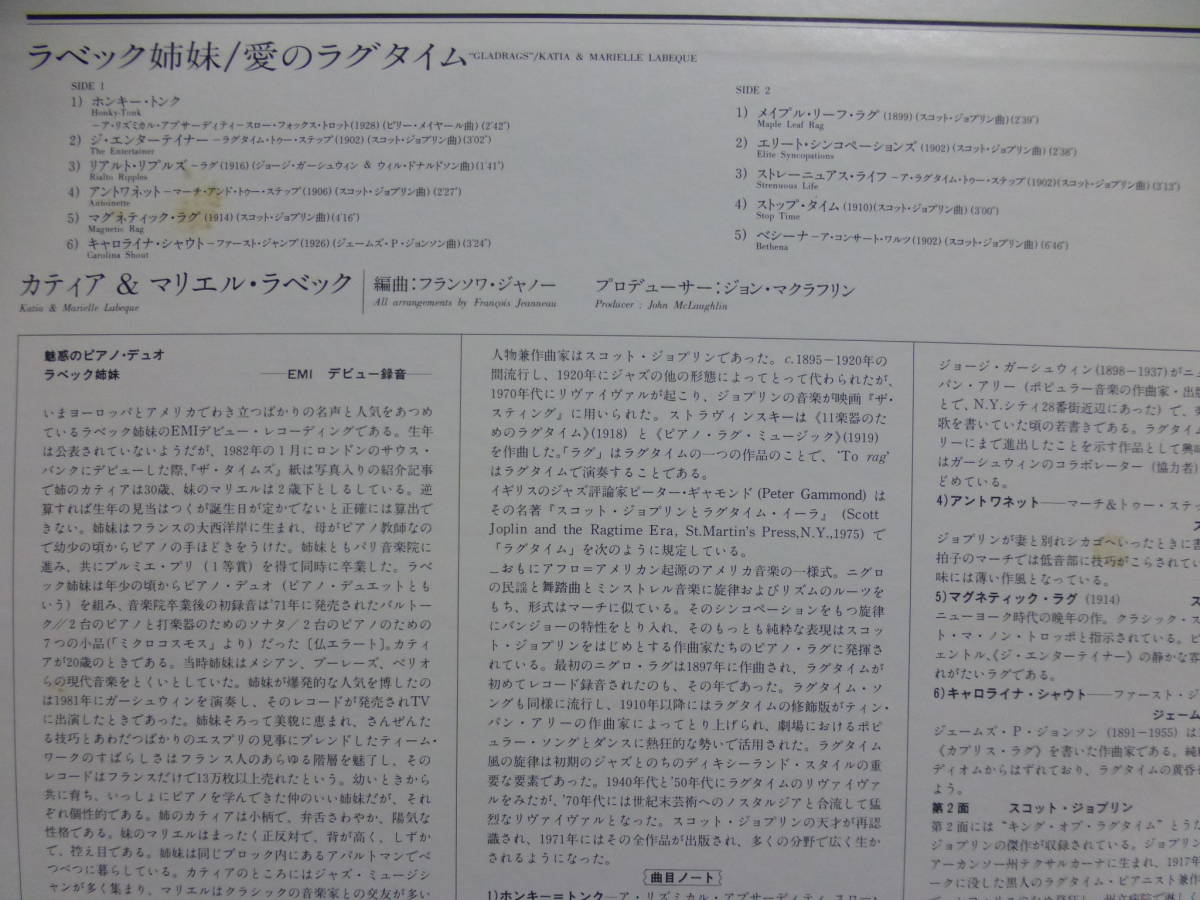 ラベック姉妹/愛のラグタイム "GLADRAGS"/KATIA & MARIELLE LABEQUE
SIDE 1
1) ホンキー・トンク
Honky-Tonk
−ア・リズミカル・アブサーディティ−スロー・フォックス・トロット(1928)(ビリー・メイヤール曲)(2'42")
2) ジ・エンターテイナー−ラグタイム・トゥー・ステップ(1902)(スコット・ジョプリン曲)(3'02")
The Entertainer
3) リアルト・リプルズ−ラグ(1916)(ジョージ・ガーシュウィン & ウィル・ドナルドソン曲)(1'41")
Rialto Ripples
4) アントワネット−マーチ・アンド・トゥー・ステップ(1906)(スコット・ジョプリン曲)(2'27")
Antoinette
5) マグネティック・ラグ(1914)(スコット・ジョプリン曲)(4'16")
Magnetic Rag
6) キャロライナ・シャウト−ファースト・ジャンプ(1926)(ジェームズ・P・ジョンソン曲)(3'24")
Carolina Shout
SIDE 2
1) メイプル・リーフ・ラグ (1899)(スコット・ジョプリン曲)(2'39")
Maple Leaf Rag
2) エリート・シンコペーションズ (1902)(スコット・ジョプリン曲)(2'38")
Elite Syncopations
3) ストレーニュアス・ライフ−ア・ラグタイム・トゥー・ステップ(1902)(スコット・ジョプリン曲)(3'13")
Strenuous Life
4) ストップ・タイム (1910)(スコット・ジョプリン曲)(3'00")
Stop Time
5) ベシーナ−ア・コンサート・ワルツ(1902)(スコット・ジョプリン曲)(6'46")
Bethena
カティア & マリエル・ラベック
Katia & Marielle Labeque
編曲:フランソワ・ジャノー
All arrangements by François Jeanneau
プロデューサー:ジョン・マクラフリン
Producer : John McLaughlin
魅惑のピアノ・デュオ
ラベック姉妹 ──EMI デビュー録音──
いまヨーロッパとアメリカでわき立つばかりの名声と人気をあつめ
ているラベック姉妹のEMIデビュー・レコーディングである。生年
は公表されていないようだが、1982年の1月にロンドンのサウス・
バンクにデビューした際、『ザ・タイムズ』紙は写真入りの紹介記事
で姉のカティアは30歳、妹のマリエルは2歳下としるしている。逆
算すれば生年の見当はつくが誕生日が定かでないと正確には算出で
きない。姉妹はフランスの大西洋岸に生まれ、母がピアノ教師なの
で幼少の頃からピアノの手ほどきをうけた。姉妹ともパリ音楽院に
進み、共にプルミエ・プリ(1等賞)を得て同時に卒業した。ラベ
ック姉妹は年少の頃からピアノ・デュオ(ピアノ・デュエットとも
いう)を組み、音楽院卒業後の初録音は'71年に発売されたバルトー
ク//2台のピアノと打楽器のためのソナタ/2台のピアノのための
7つの小品(「ミクロコスモス」より)だった[仏エラート]。カティ
アが20歳のときである。当時姉妹はメシアン、ブーレーズ、ベリオ
らの現代音楽をとくいとしていた。姉妹が爆発的な人気を博したの
は1981年にガーシュウィンを演奏し、そのレコードが発売されTV
に出演したときであった。姉妹そろって美貌に恵まれ、さんぜんた
る技巧とあわだつばかりのエスプリの見事にブレンドしたティーム・
ワークのすばらしさはフランス人のあらゆる階層を魅了し、その
レコードはフランスだけで13万枚以上売れたという。幼いときから
共に育ち、いっしょにピアノを学んできた仲のいい姉妹だが、それ
ぞれ個性的である。姉のカティアは小柄で、弁舌さわやか、陽気な
性格である。妹のマリエルはまったく正反対で、背が高く、しずか
で、控え目である。姉妹は同じブロック内にあるアパルトマンでべ
つべつに暮らしている。カティアのところにはジャズ・ミュージシ
ャンが多く集まり、マリエルはクラシックの音楽家との交友が多い
人物兼作曲家はスコット・ジョプリンであった。c.1895−1920年の
間流行し、1920年にジャズの他の形態によってとって代わられたが、
1970年代にリヴァイヴァルが起こり、ジョプリンの音楽が映画『ザ・
スティング』に用いられた。ストラヴィンスキーは《11楽器のた
めのラグタイム》(1918) と《ピアノ・ラグ・ミュージック》(1919)
を作曲した。「ラグ」はラグタイムの一つの作品のことで、'To rag'
はラグタイムで演奏することである。
イギリスのジャズ評論家ピーター・ギャモンド(Peter Gammond)は
その名著『スコット・ジョプリンとラグタイム・イーラ』(Scott
Joplin and the Ragtime Era, St.Martin's Press,N.Y.,1975)で
「ラグタイム」を次のように規定している。
_おもにアフロ=アメリカン起源のアメリカ音楽の一様式。ニグロ
の民謡と舞踏曲とミンストレル音楽に旋律およびリズムのルーツを
もち、形式はマーチに似ている。そのシンコペーションをもつ旋律
にバンジョーの特性をとり入れ、そのもっとも純粋な表現はスコッ
ト・ジョプリンをはじめとする作曲家たちのピアノ・ラグに発揮さ
れている。最初のニグロ・ラグは1897年に作曲され、ラグタイムが
初めてレコード録音されたのも、その年であった。ラグタイム・ソ
ングも同様に流行し、1910年以降にはラグタイムの修飾版がティン・
パン・アリーの作曲家によってとり上げられ、劇場におけるポピ
ュラー・ソングとダンスに熱狂的な勢いで活用された。ラグタイム
風の旋律は初期のジャズとのちのディキシーランド・スタイルの重
要な要素であった。1940年代と'50年代にラグタイムのリヴァイヴァ
ルをみたが、'70年代には世紀末芸術へのノスタルジアと合流して猛
烈なリヴァイヴァルとなった。スコット・ジョプリンの天才が再認
識され、1971年にはその全作品が出版され、多くの分野で広く生か
されるようになった。
曲目ノート
1)ホンキー=トンク─ア・リズミカル・アブサーディティ スロー・
ジョージ・ガーシュウィン(1898−1937)がニュ
パン・アリー(ポピュラー音楽の作曲家・出版
とで、N.Y.シティ28番街近辺にあった)で、
歌を書いていた頃の若書きである。ラグタイム
リーにまで進出したことを示す作品として興味
はガーシュウィンのコラボレーター(協力者)
どめている。
4)アントワネット──マーチ&トゥー・ステッ
ス
ジョプリンが妻と別れシカゴへいったときに書
拍子のマーチでは低音部に技巧がこらされてい
味には薄い作風となっている。
5)マグネティック・ラグ (1914) ス
ニューヨーク時代の晩年の作。クラシック・ス
ト・マ・ノン・トロッポと指示されている。ピ
ェントル、《ジ・エンターテイナー》の静かな容
れがたいラグである。
6)キャロライナ・シャウト──ファースト・ジ
ジェーム
ジェームズ・P・ジョンソン (1891−1955) は
《カプリス・ラグ》を書いた作曲家である。純
ディオムからはずれており、ラグタイムの黄昏
よう。
第2面 スコット・ジョプリン
第2面には"キング・オブ・ラグタイム"とうた
ジョプリンの傑作が収録されている。ジョプリン
アーカンソー州テクサルカーナに生まれ、1917年
ークに没した黒人のラグタイム・ピアニスト兼作